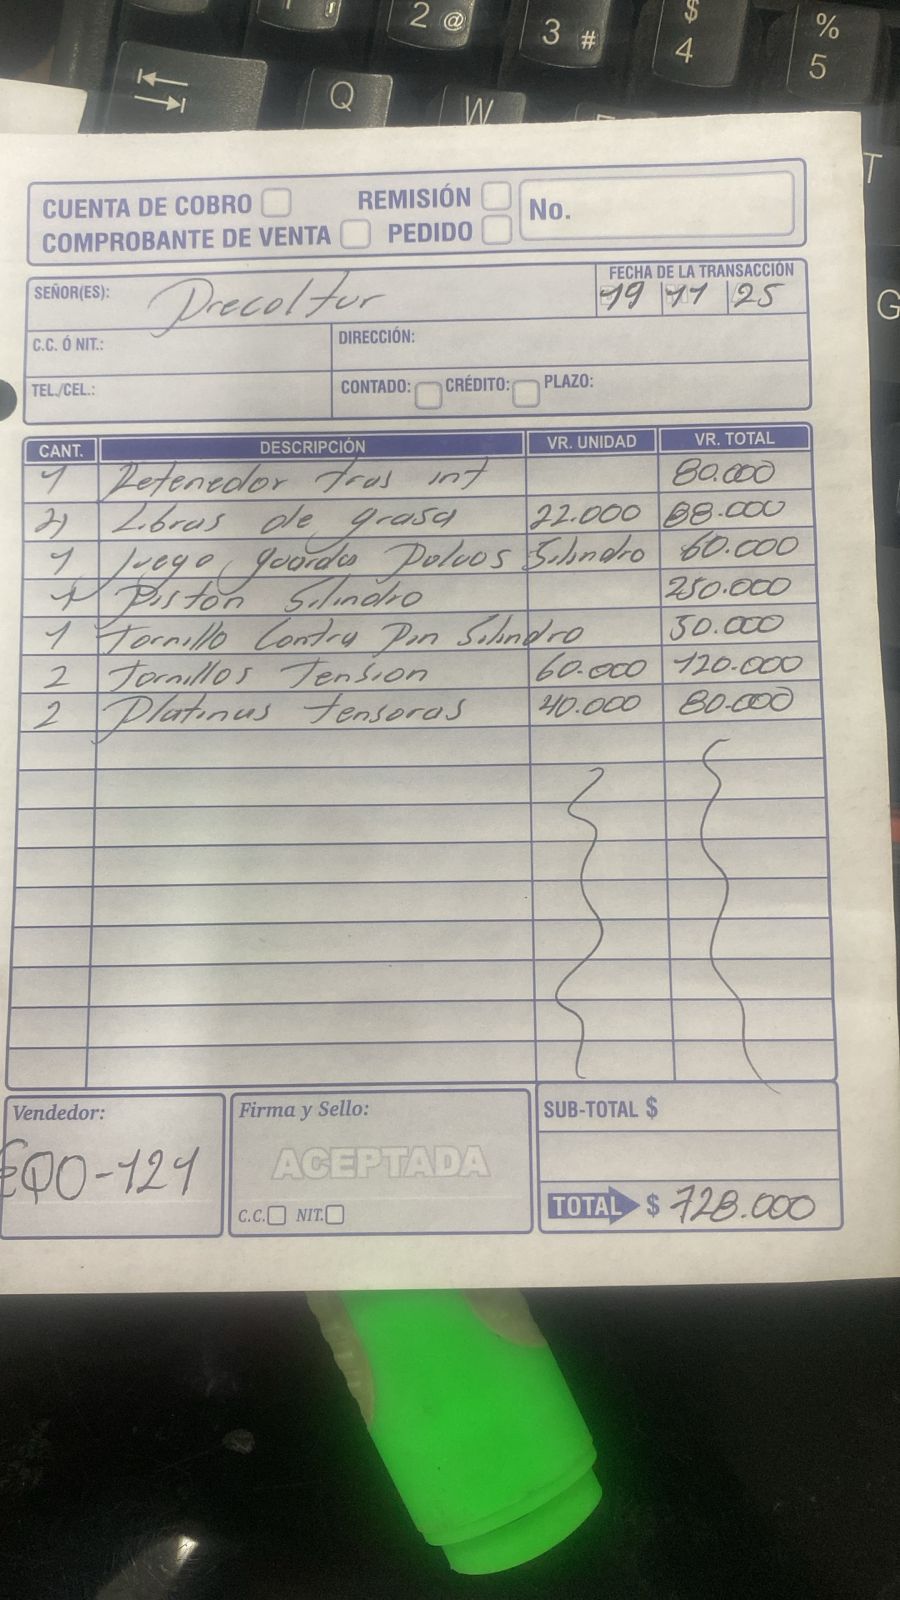 2 @
3 #
$ 4
% 5
Q
W
T
G
CUENTA DE COBRO REMISIÓN No.
COMPROBANTE DE VENTA PEDIDO
SEÑOR(ES): Precoltur FECHA DE LA TRANSACCIÓN
19 11 25
C.C. Ó NIT.: DIRECCIÓN:
TEL./CEL.: CONTADO: CRÉDITO: PLAZO:
CANT. DESCRIPCIÓN VR. UNIDAD VR. TOTAL
1 Retenedor tras int 80.000
4 Libras de grasa 22.000 88.000
1 Juego guarda Polvos Silindro 60.000
1 Piston Silindro 250.000
1 Tornillo Contra Pin Silindro 50.000
2 Tornillos Tension 60.000 120.000
2 Platinas tensoras 40.000 80.000
Vendedor: Firma y Sello: SUB-TOTAL $
EQO-121 ACEPTADA
C.C. NIT. TOTAL $ 728.000